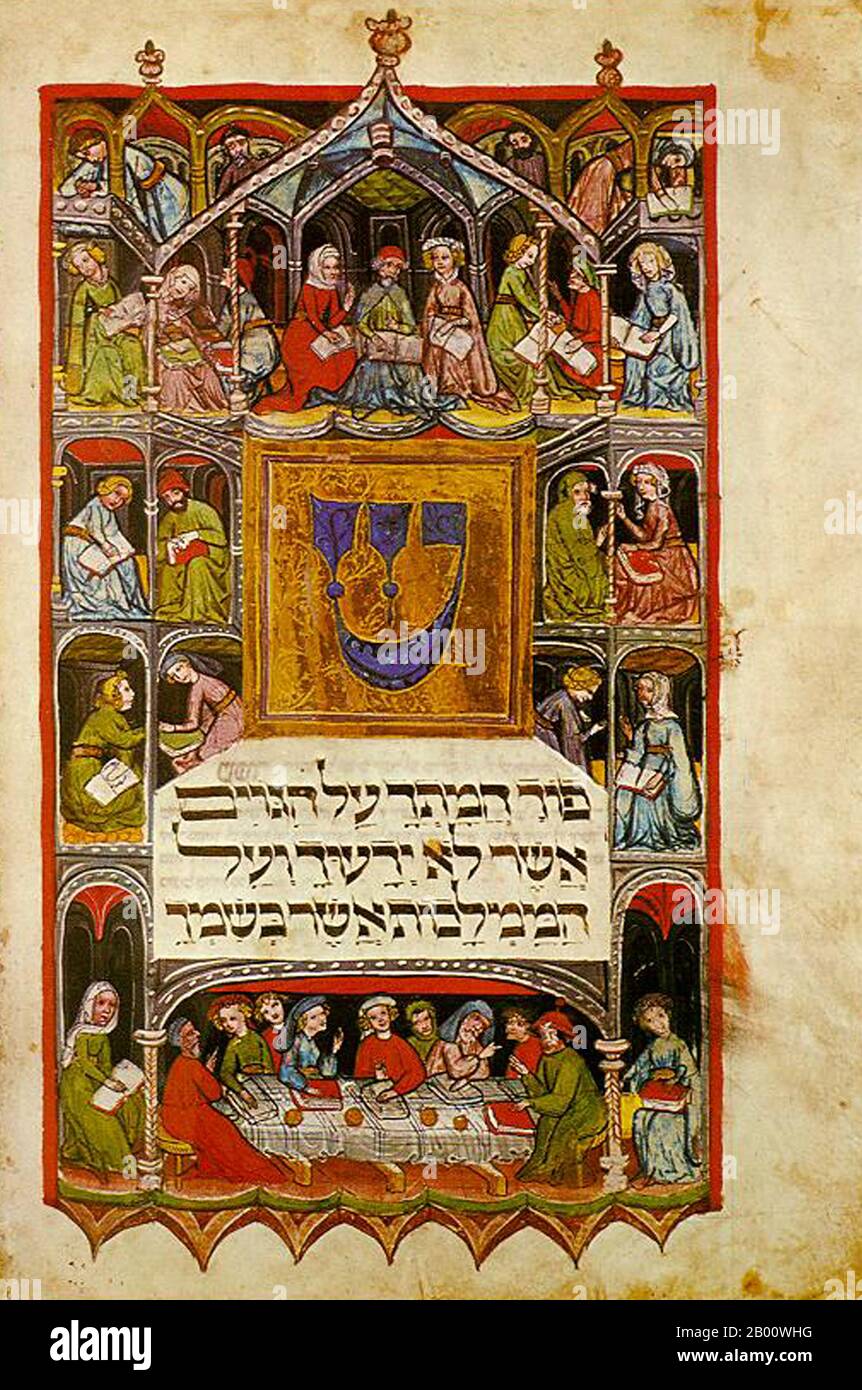 ש
פוך חמתך על הגוים
אשר לא ידעוך ועל
הממלכות אשר בשמך
alamy
Image ID: 2B00WHG
www.alamy.com